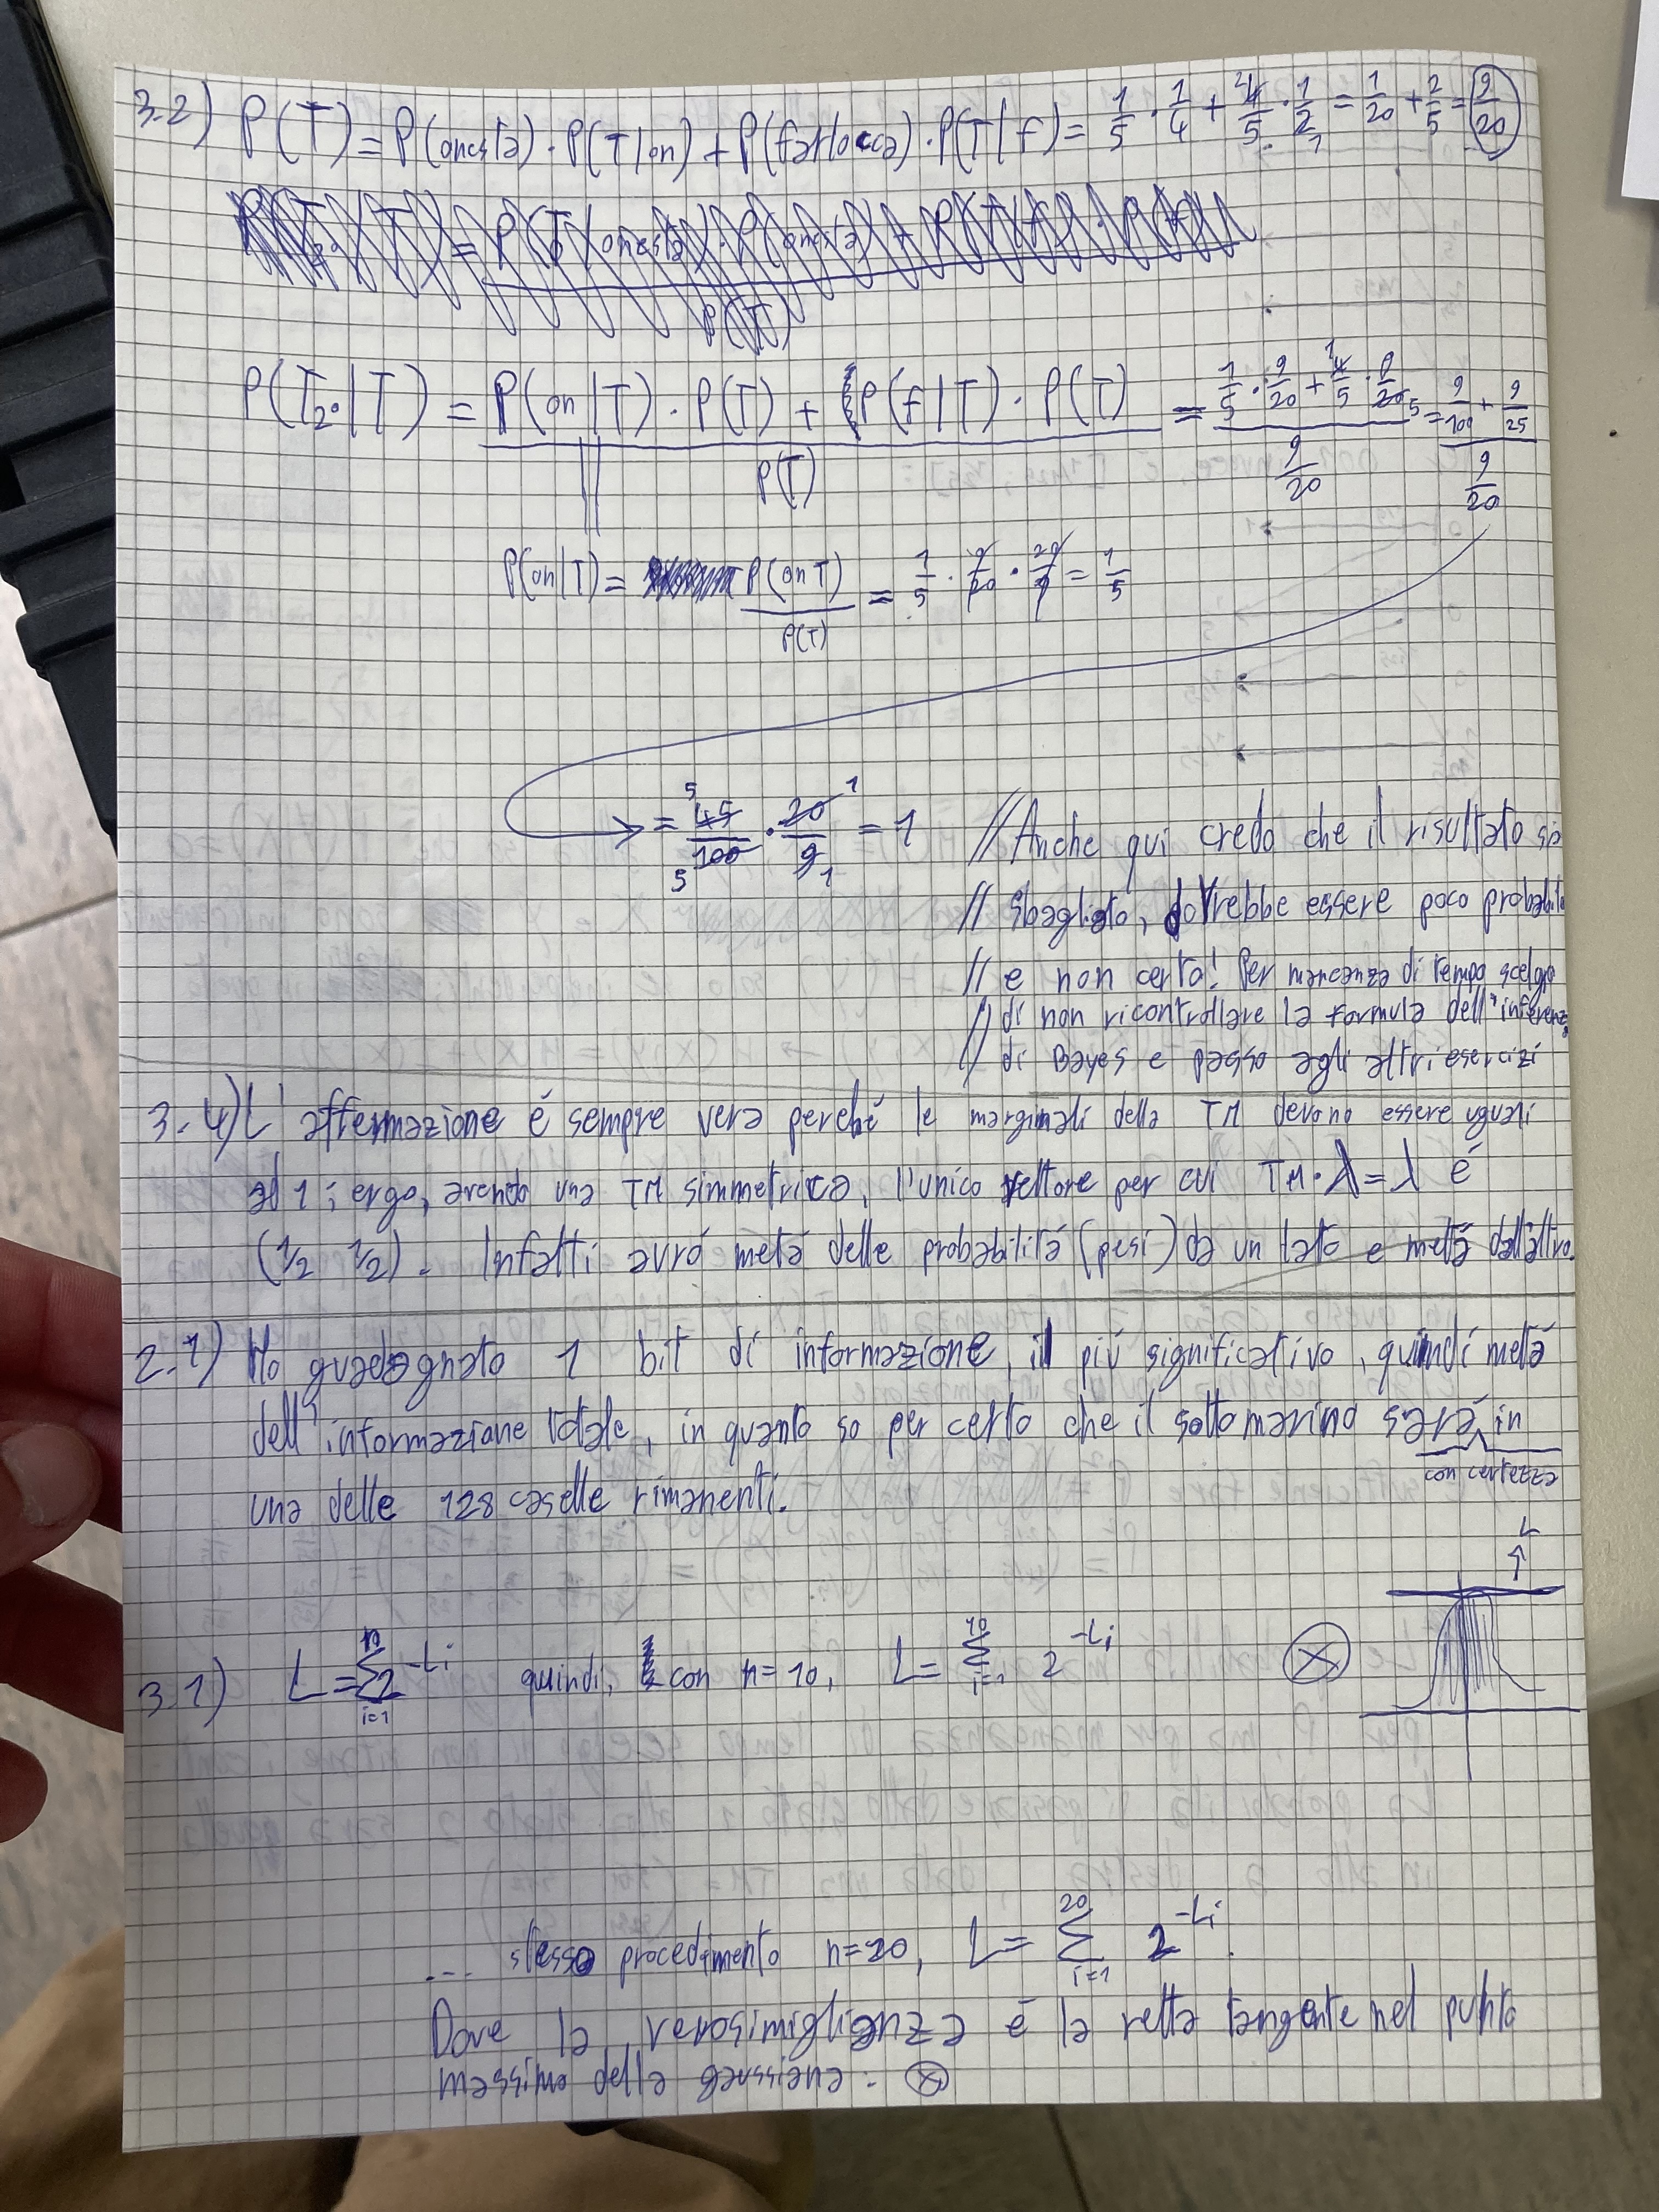 3.2) P(T) = P(onesta) · P(T|on) + P(farlocca) · P(T|f) = 1/5 · 1/4 + 4/5 · 1/2 = 1/20 + 2/5 = 9/20
P(T2°|T) = (P(on|T) · P(T) + P(f|T) · P(T)) / P(T) = (1/5 · 9/20 + 4/5 · 9/20) / (9/20) = (9/100 + 9/25) / (9/20)
P(on|T) = P(on T) / P(T) = 1/5 · 9/20 · 20/9 = 1/5
= 45/100 · 20/9 = 1
// Anche qui credo che il risultato sia
// sbagliato, dovrebbe essere poco probabile
// e non certo! Per mancanza di tempo scelgo
// di non ricontrollare la formula dell'inferenza
// di Bayes e passo agli altri esercizi
3.4) L'affermazione é sempre vera perché le marginali della TM devono essere uguali
ad 1; ergo, avendo una TM simmetrica, l'unico vettore per cui TM·λ=λ é
(1/2 1/2). Infatti avró metá delle probabilitá (pesi) da un lato e metá dall'altro.
2.1) Ho guadagnato 1 bit di informazione, il piú significativo, quindi metá
dell'informazione totale, in quanto so per certo che il sottomarino sará in
con certezza
una delle 128 caselle rimanenti.
L
3.1) L = Σ_{i=1}^{n} 2^{-Li} quindi, con n=10, L = Σ_{i=1}^{10} 2^{-Li} ⊗
... stesso procedimento n=20, L = Σ_{i=1}^{20} 2^{-Li}.
Dove la verosimiglianza é la retta tangente nel punto
massimo della gaussiana. ⊗